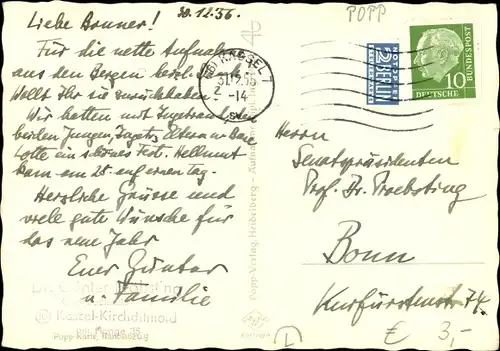 30.12.56.
Liebe Bonner!
Für die nette Aufnahme
aus den Bergen
Wollt Ihr sie zurückhaben
Wir hatten mit
beiden Jungen, Eltern u. Base
Lotte ein schönes Fest. Hellmut
kam am 25. auf einen Tag.
Herzliche Grüsse und
viele gute Wünsche für
das neue Jahr
Euer Günter
u. Familie
Kassel-Kirchditmold
Popp-Karte,
Popp-Verlag, Heidelberg
POPP
KASSEL 7
31.12.56
-14
NOTOPFER
2 BERLIN
STEUERMARKE
10
DEUTSCHE
BUNDESPOST
Herrn
Senatspräsidenten
Prof. Dr. Proebsting
Bonn
Kurfürstenstr. 74.
€ 3,-